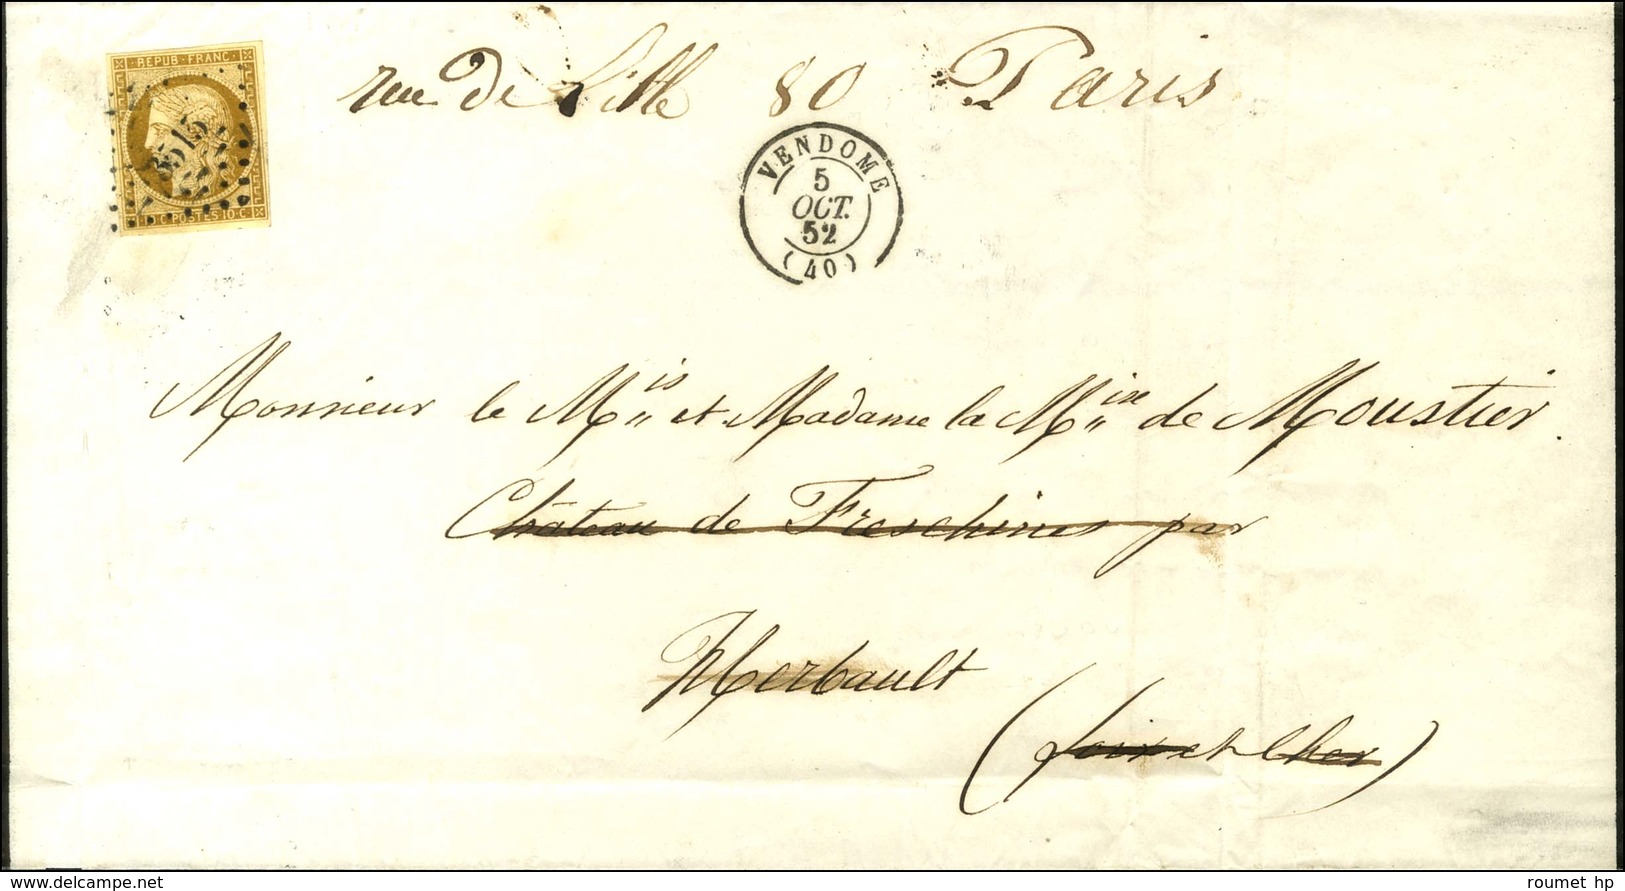 rue de Lille 80 Paris
REPUB·FRANC·
3515
10·C·POSTES·10·C·
VENDOME
5
OCT.
52
(40)
Monsieur le Mis et Madame la Mise de Moustier
Château de Freschines par
Herbault
(Loir et Cher)
www.delcampe.net
roumet hp